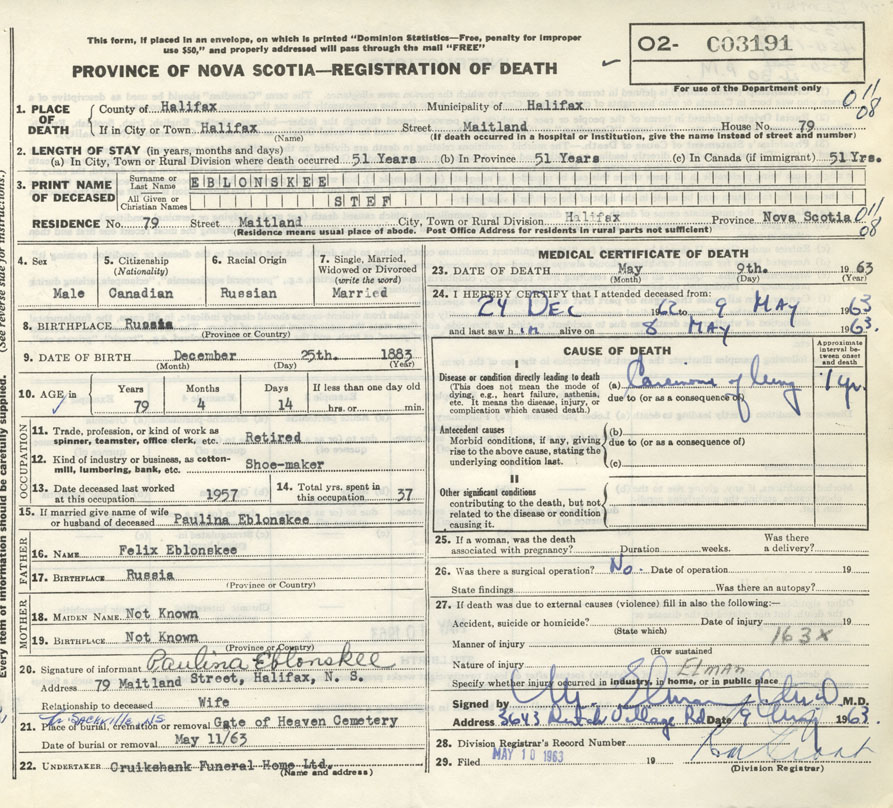 This form, if placed in an envelope, on which is printed "Dominion Statistics—Free, penalty for improper
use $50," and properly addressed will pass through the mail "FREE"
PROVINCE OF NOVA SCOTIA—REGISTRATION OF DEATH
02- C03191
For use of the Department only
1. PLACE OF DEATH
County of Halifax Municipality of Halifax
If in City or Town Halifax Street Maitland House No. 79
(Name) (If death occurred in a hospital or institution, give the name instead of street and number)
011
08
2. LENGTH OF STAY (in years, months and days)
(a) In City, Town or Rural Division where death occurred 51 Years (b) In Province 51 Years (c) In Canada (if immigrant) 51 Yrs.
3. PRINT NAME OF DECEASED
Surname or Last Name EBLONSKEE
All Given or Christian Names STEF
RESIDENCE No. 79 Street Maitland City, Town or Rural Division Halifax Province Nova Scotia
(Residence means usual place of abode. Post Office Address for residents in rural parts not sufficient)
011
08
4. Sex
Male
5. Citizenship
(Nationality)
Canadian
6. Racial Origin
Russian
7. Single, Married,
Widowed or Divorced
(write the word)
Married
8. BIRTHPLACE Russia
(Province or Country)
9. DATE OF BIRTH December 25th. 1883
(Month) (Day) (Year)
10. AGE in
Years 79
Months 4
Days 14
If less than one day old
hrs. or min.
OCCUPATION
11. Trade, profession, or kind of work as
spinner, teamster, office clerk, etc. Retired
12. Kind of industry or business, as cotton-
mill, lumbering, bank, etc. Shoe-maker
13. Date deceased last worked
at this occupation 1957
14. Total yrs. spent in
this occupation 37
15. If married give name of wife
or husband of deceased Paulina Eblonskee
FATHER
16. NAME Felix Eblonskee
17. BIRTHPLACE Russia
(Province or Country)
MOTHER
18. MAIDEN NAME Not Known
19. BIRTHPLACE Not Known
(Province or Country)
20. Signature of informant Paulina Eblonskee
Address 79 Maitland Street, Halifax, N. S.
Relationship to deceased Wife
SACKVILLE NS
21. Place of burial, cremation or removal Gate of Heaven Cemetery
Date of burial or removal May 11/63
22. UNDERTAKER Cruikshank Funeral Home Ltd.
(Name and address)
MEDICAL CERTIFICATE OF DEATH
23. DATE OF DEATH May 9th. 1963
(Month) (Day) (Year)
24. I HEREBY CERTIFY that I attended deceased from:
24 DEC 1962 to 9 MAY 1963
and last saw h im alive on 8 MAY 1963.
CAUSE OF DEATH
Approximate
interval be-
tween onset
and death
I
Disease or condition directly leading to death
(This does not mean the mode of
dying, e.g., heart failure, asthenia,
etc. It means the disease, injury, or
complication which caused death.)
(a) Carcinoma of lung 1 yr.
due to (or as a consequence of)
Antecedent causes
Morbid conditions, if any, giving
rise to the above cause, stating the
underlying condition last.
(b)
due to (or as a consequence of)
(c)
II
Other significant conditions
contributing to the death, but not
related to the disease or condition
causing it.
25. If a woman, was the death
associated with pregnancy? Duration weeks. Was there
a delivery?
26. Was there a surgical operation? No. Date of operation 19
State findings Was there an autopsy?
27. If death was due to external causes (violence) fill in also the following:—
Accident, suicide or homicide? Date of injury 19
(State which)
163x
Manner of injury
(How sustained
Nature of injury
ELMAN
Specify whether injury occurred in industry, in home, or in public place
Signed by M.D.
Address 3643 Dutch Village Rd Date 9 1963.
28. Division Registrar's Record Number
29. Filed MAY 10 1963 19
(Division Registrar)
Every item of information should be carefully supplied. (See reverse side for instructions.)